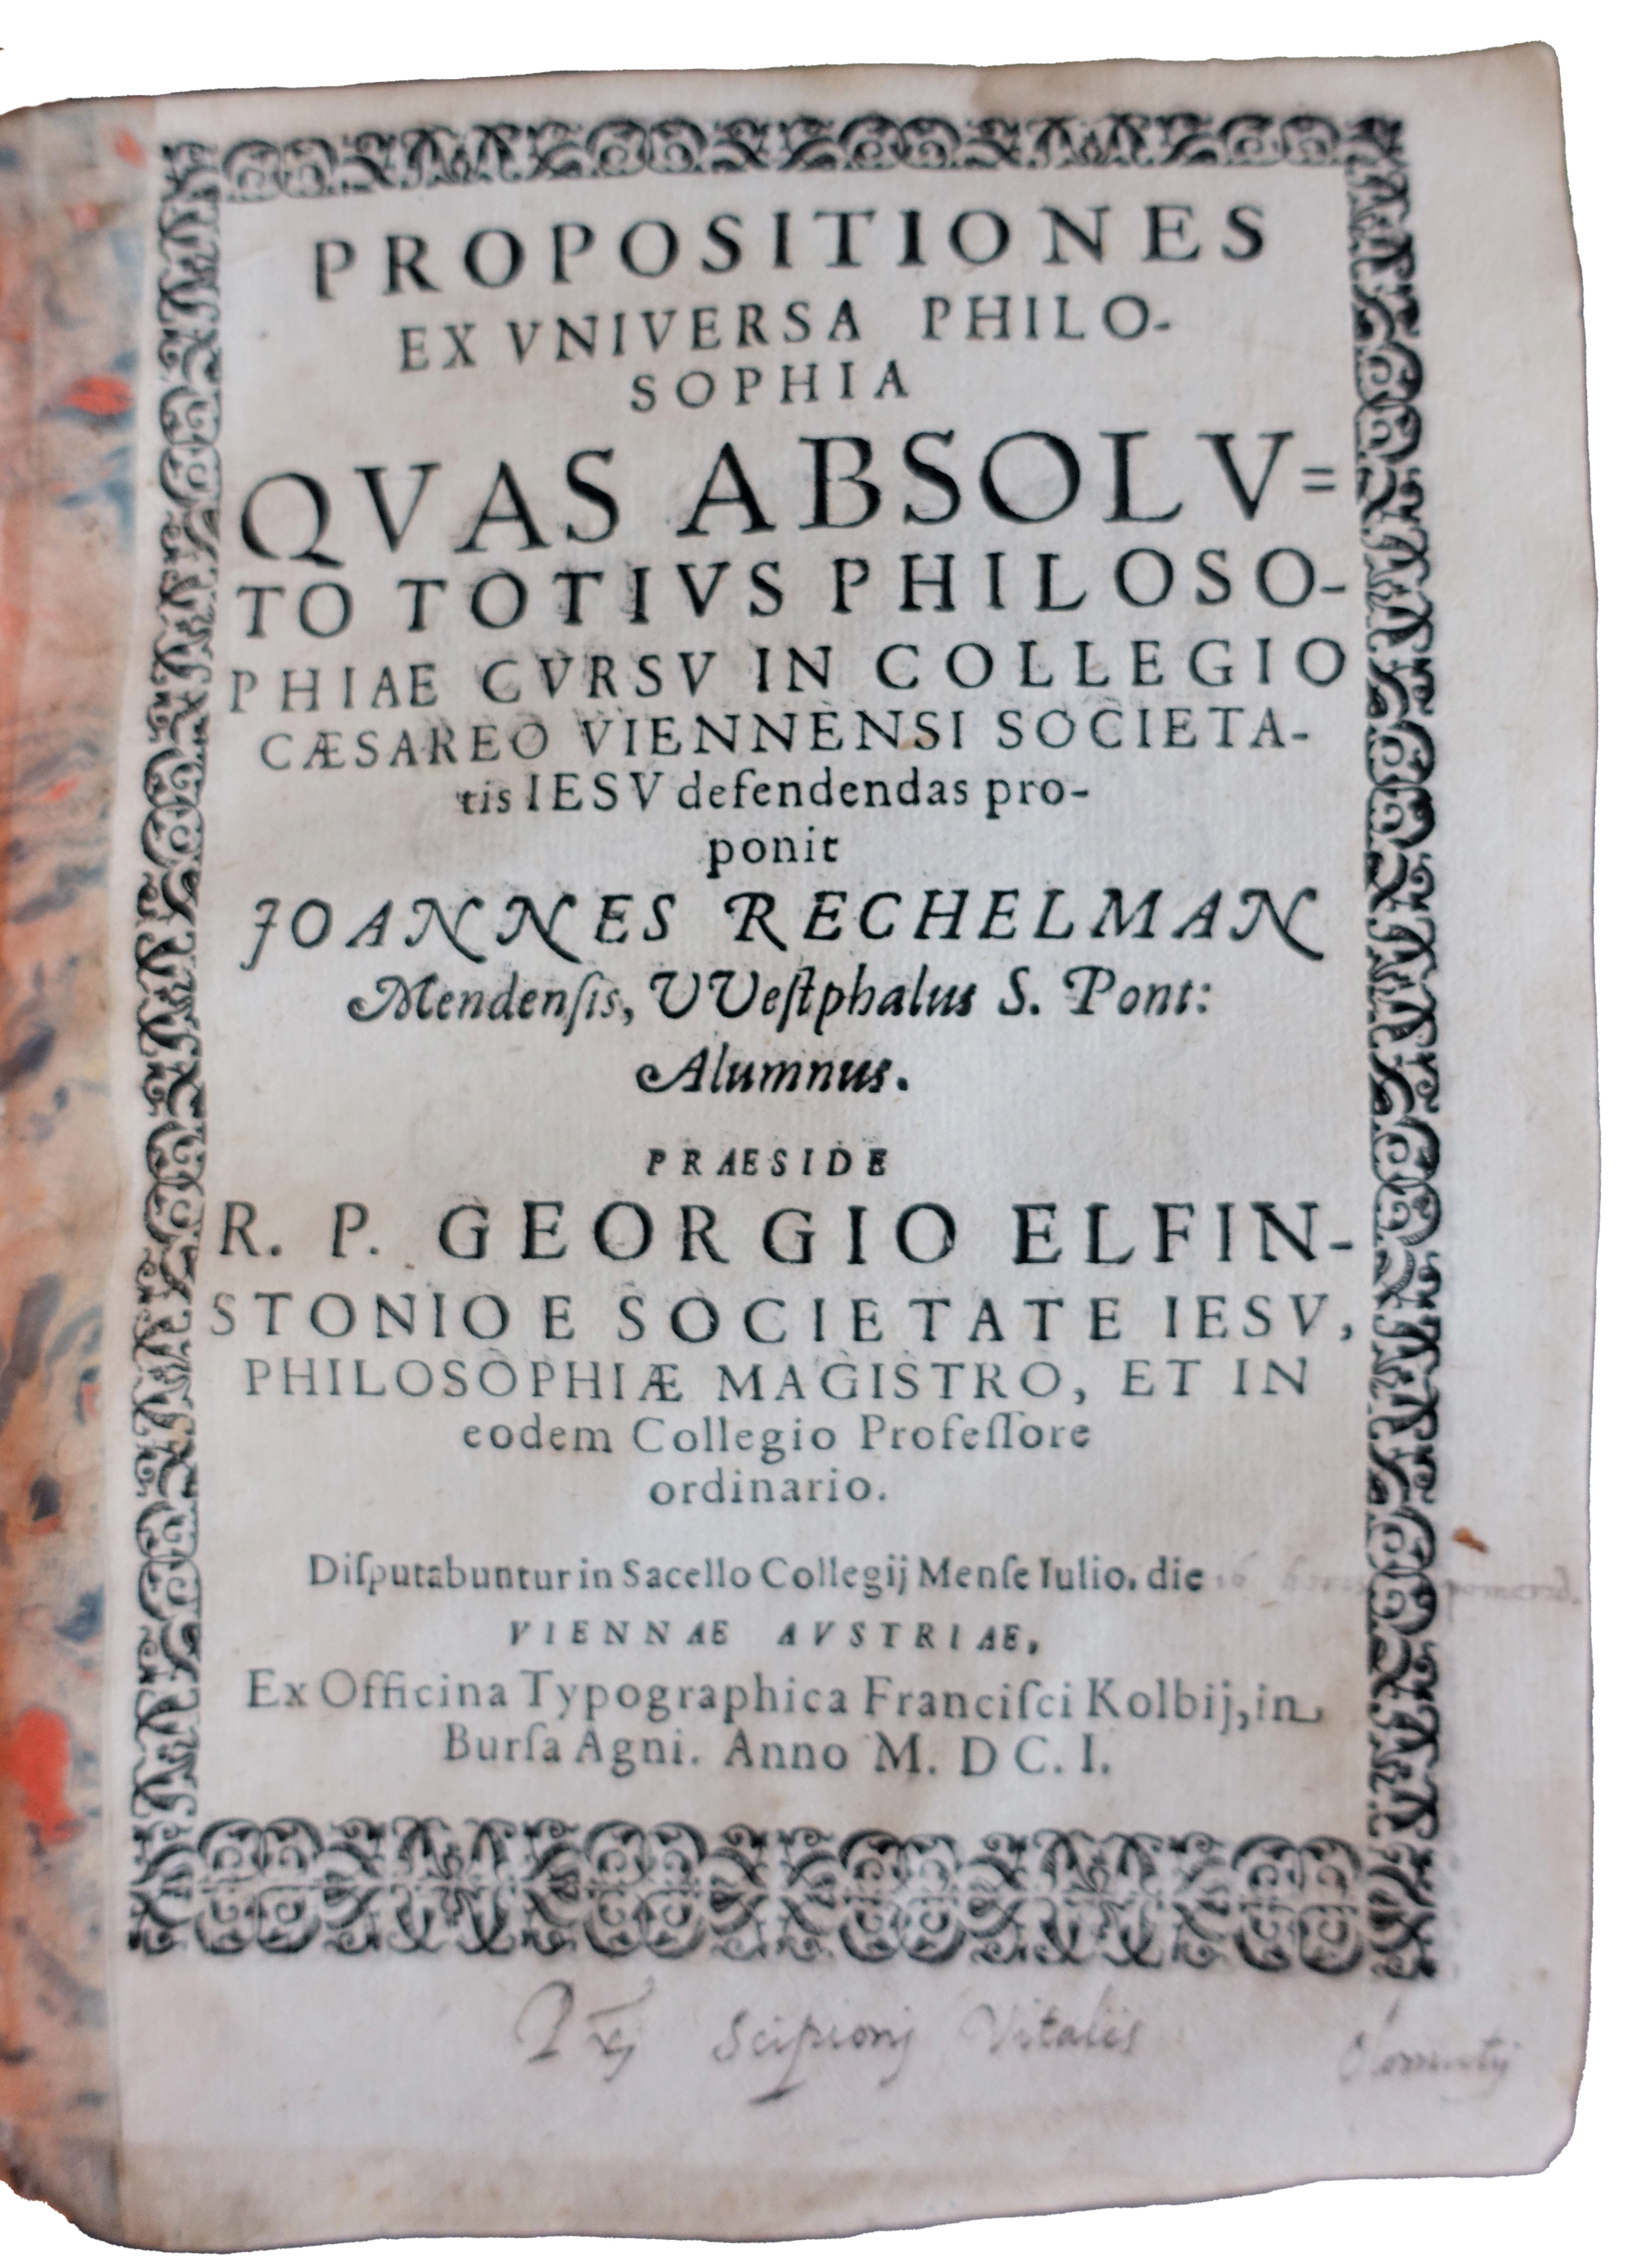 PROPOSITIONES
EX VNIVERSA PHILO-
SOPHIA
QVAS ABSOLV=
TO TOTIVS PHILOSO-
PHIAE CVRSV IN COLLEGIO
CÆSAREO VIENNENSI SOCIETA-
tis IESV defendendas pro-
ponit
JOANNES RECHELMAN
Mendenſis, VVeſtphalus S. Pont:
Alumnus.
PRAESIDE
R. P. GEORGIO ELFIN-
STONIO E SOCIETATE IESV,
PHILOSOPHIÆ MAGISTRO, ET IN
eodem Collegio Profeſſore
ordinario.
Diſputabuntur in Sacello Collegij Menſe Iulio. die 16 pomerid.
VIENNAE AVSTRIAE,
Ex Officina Typographica Franciſci Kolbij, in
Burſa Agni. Anno M. DC. I.
Scipionj Vitalis